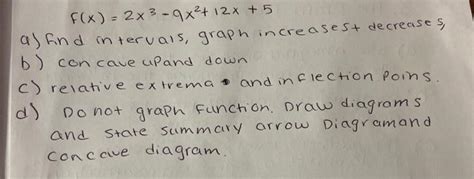 F(x) = 2x³ - 9x² + 12x + 5
a) find intervals, graph increases + decreases,
b) concave up and down
c) relative extrema and inflection poins.
d) Do not graph function. Draw diagrams
and state summary arrow Diagram and
concave diagram.